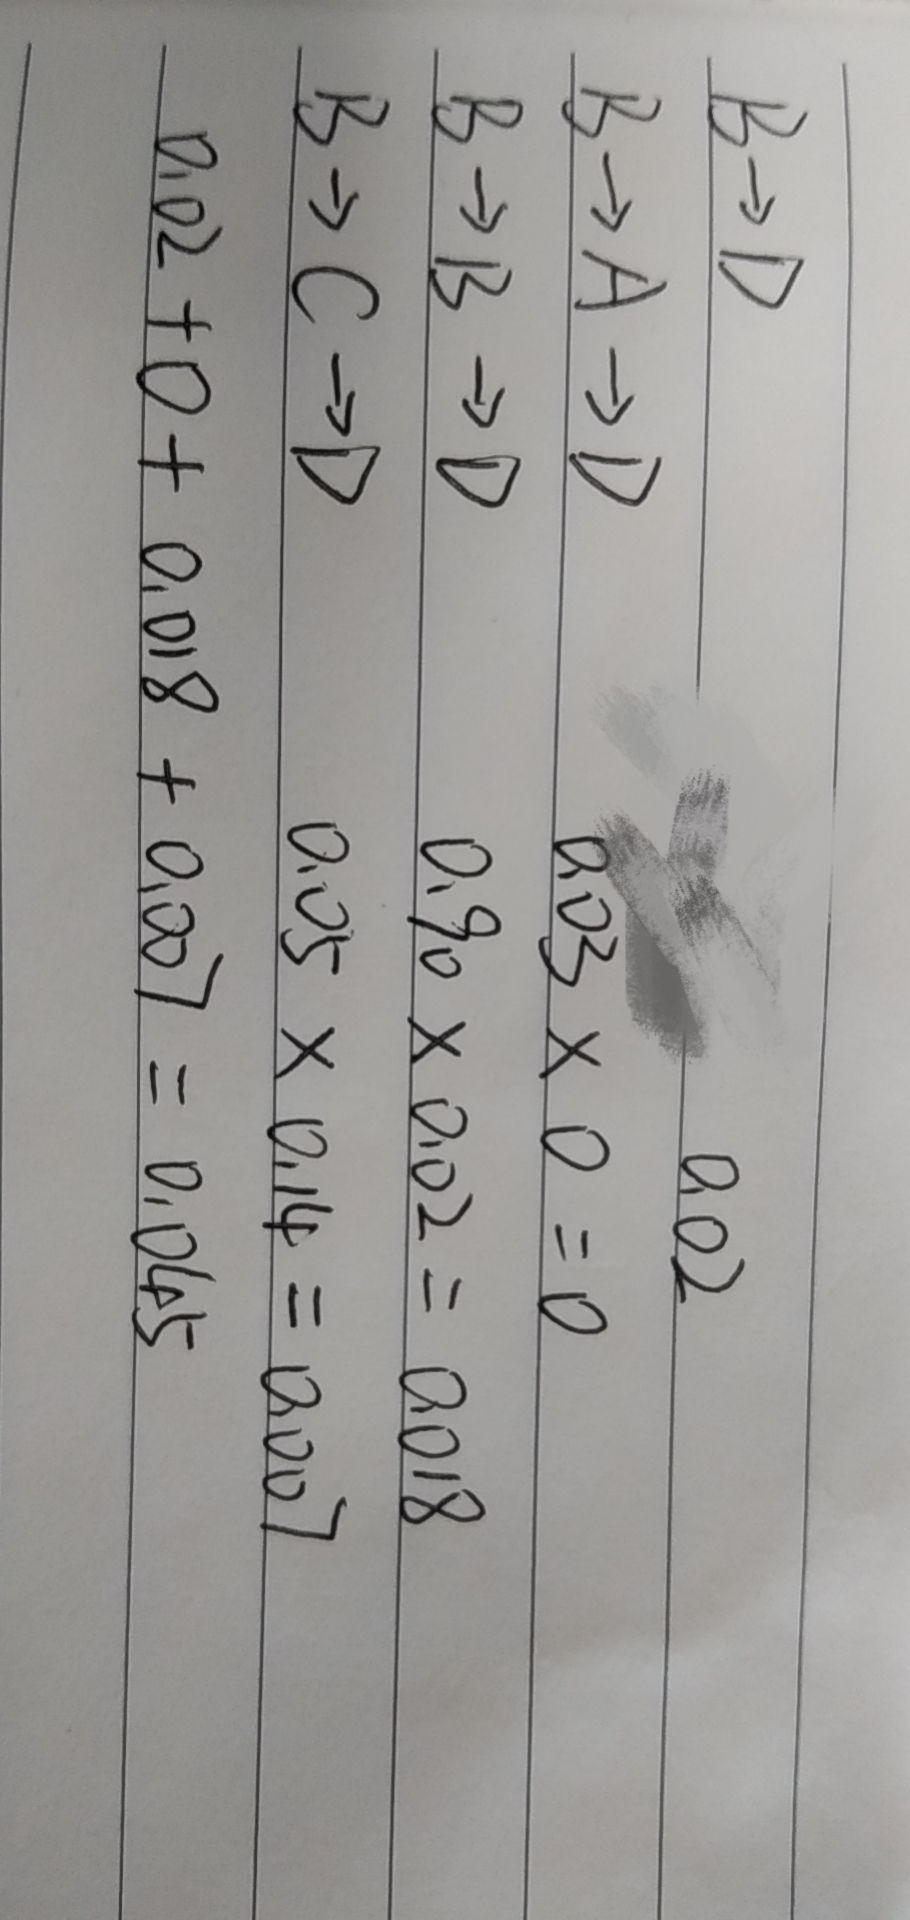 B → D 0.02
B → A → D 0.03 × 0 = 0
B → B → D 0.90 × 0.02 = 0.018
B → C → D 0.05 × 0.14 = 0.007
0.02 + 0 + 0.018 + 0.007 = 0.045